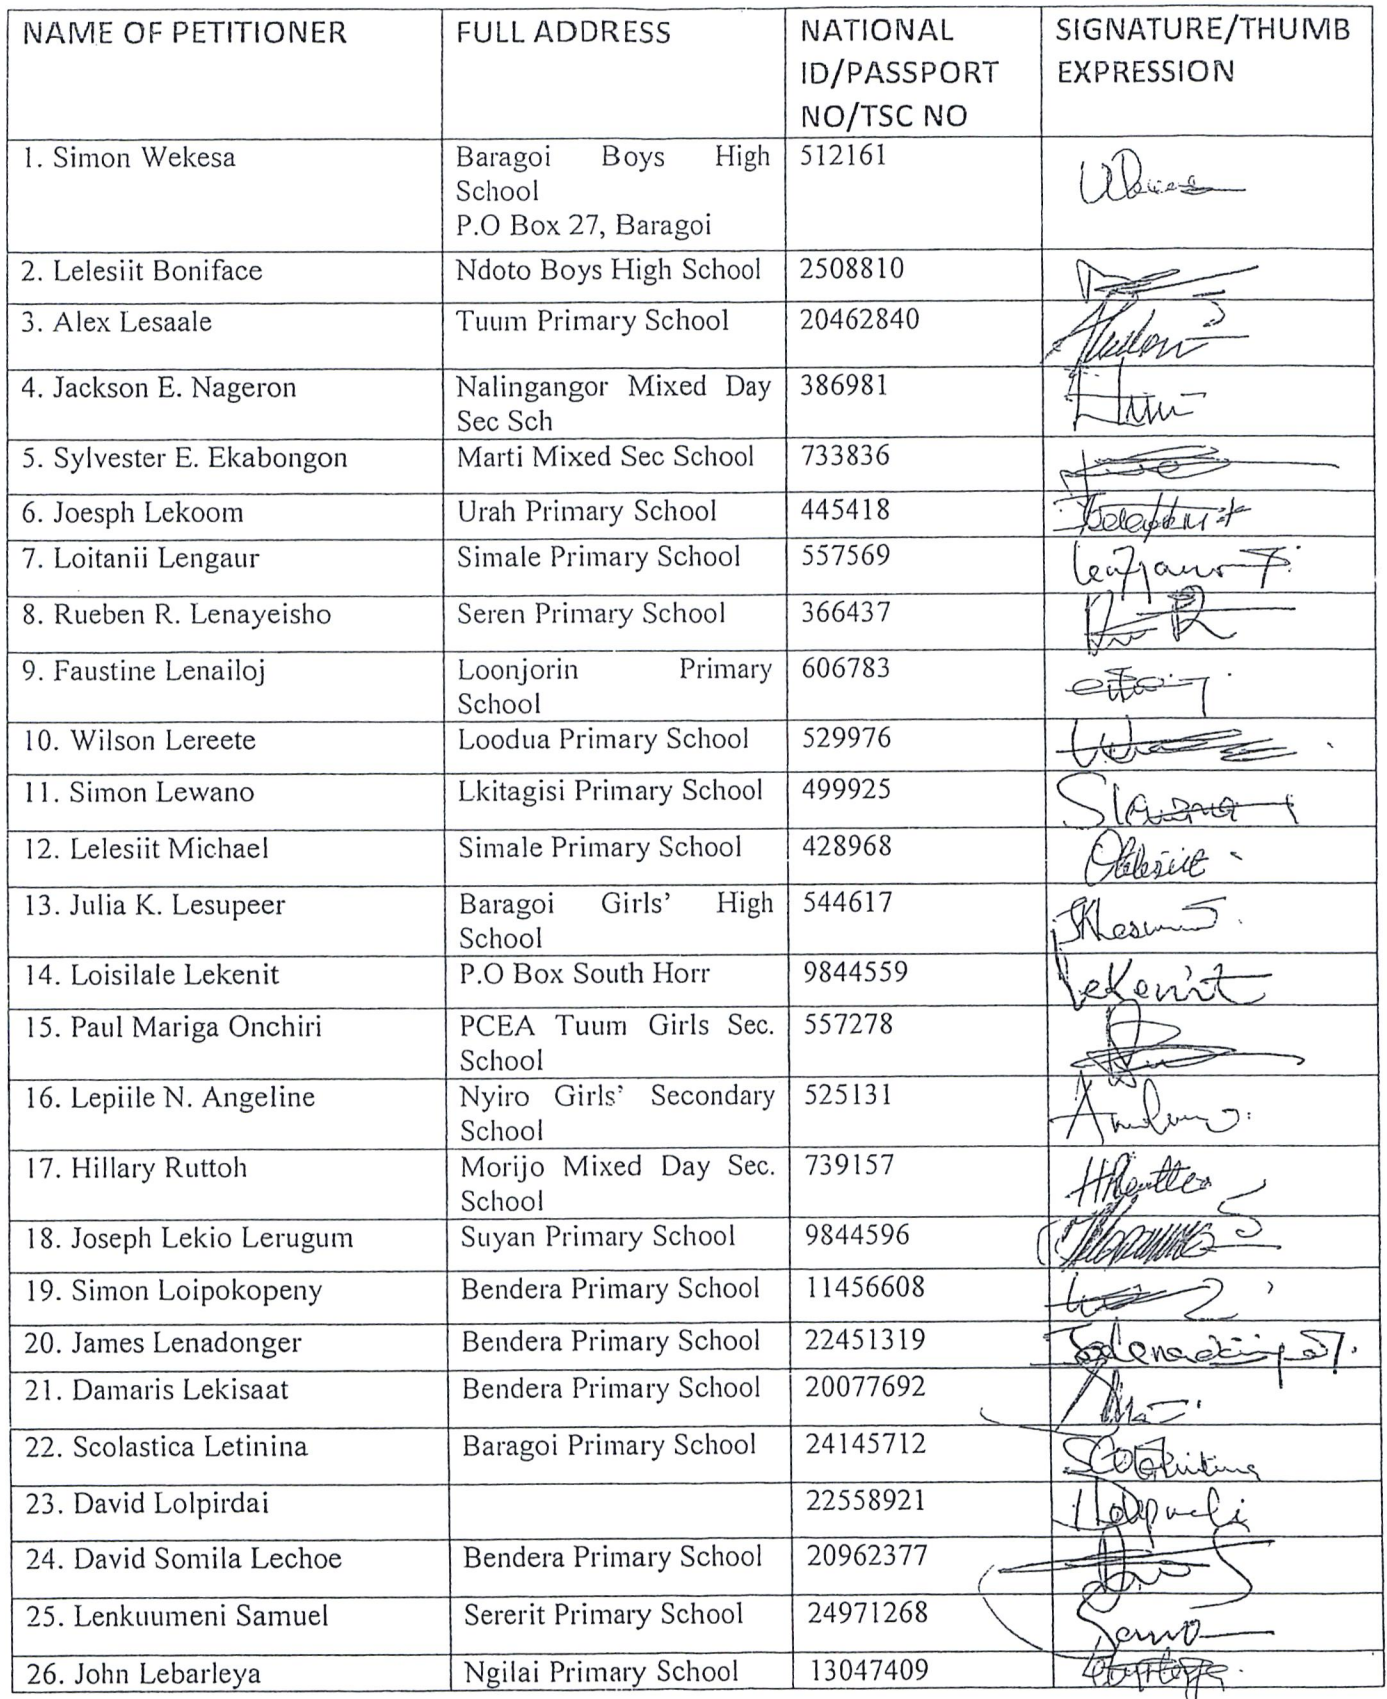 NAME OF PETITIONER FULL ADDRESS NATIONAL SIGNATURE/THUMB
ID/PASSPORT EXPRESSION
NO/TSC NO
1. Simon Wekesa Baragoi Boys High 512161
School
P.O Box 27, Baragoi
2. Lelesiit Boniface Ndoto Boys High School 2508810
3. Alex Lesaale Tuum Primary School 20462840
4. Jackson E. Nageron Nalingangor Mixed Day 386981
Sec Sch
5. Sylvester E. Ekabongon Marti Mixed Sec School 733836
6. Joesph Lekoom Urah Primary School 445418
7. Loitanii Lengaur Simale Primary School 557569
8. Rueben R. Lenayeisho Seren Primary School 366437
9. Faustine Lenailoj Loonjorin Primary 606783
School
10. Wilson Lereete Loodua Primary School 529976
11. Simon Lewano Lkitagisi Primary School 499925
12. Lelesiit Michael Simale Primary School 428968
13. Julia K. Lesupeer Baragoi Girls’ High 544617
School
14. Loisilale Lekenit P.O Box South Horr 9844559 Lekenit
15. Paul Mariga Onchiri PCEA Tuum Girls Sec. 557278
School
16. Lepiile N. Angeline Nyiro Girls’ Secondary 525131
School
17. Hillary Ruttoh Morijo Mixed Day Sec. 739157
School
18. Joseph Lekio Lerugum Suyan Primary School 9844596
19. Simon Loipokopeny Bendera Primary School 11456608
20. James Lenadonger Bendera Primary School 22451319
21. Damaris Lekisaat Bendera Primary School 20077692
22. Scolastica Letinina Baragoi Primary School 24145712
23. David Lolpirdai 22558921
24. David Somila Lechoe Bendera Primary School 20962377
25. Lenkuumeni Samuel Sererit Primary School 24971268
26. John Lebarleya Ngilai Primary School 13047409